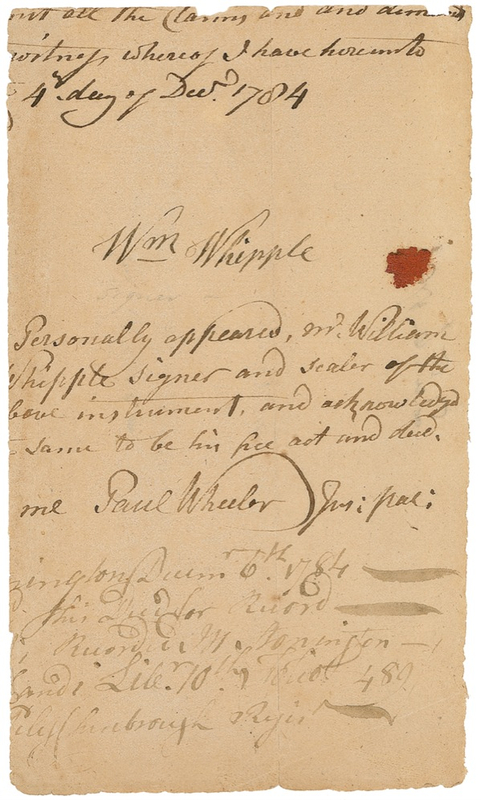 out all the Claims and and demand
witness whereof I have hereunto
4th day of Decr. 1784
Wm Whipple
signer
Personally appeared, mr. William
Whipple signer and sealer of the
bove instrument, and acknowledgd
same to be his free act and deed.
me Paul Wheeler Jus: pac:
ington Decemr 6th. 1784
this Deed for Record
Record
Libr. 10th Folio 489
Regisr